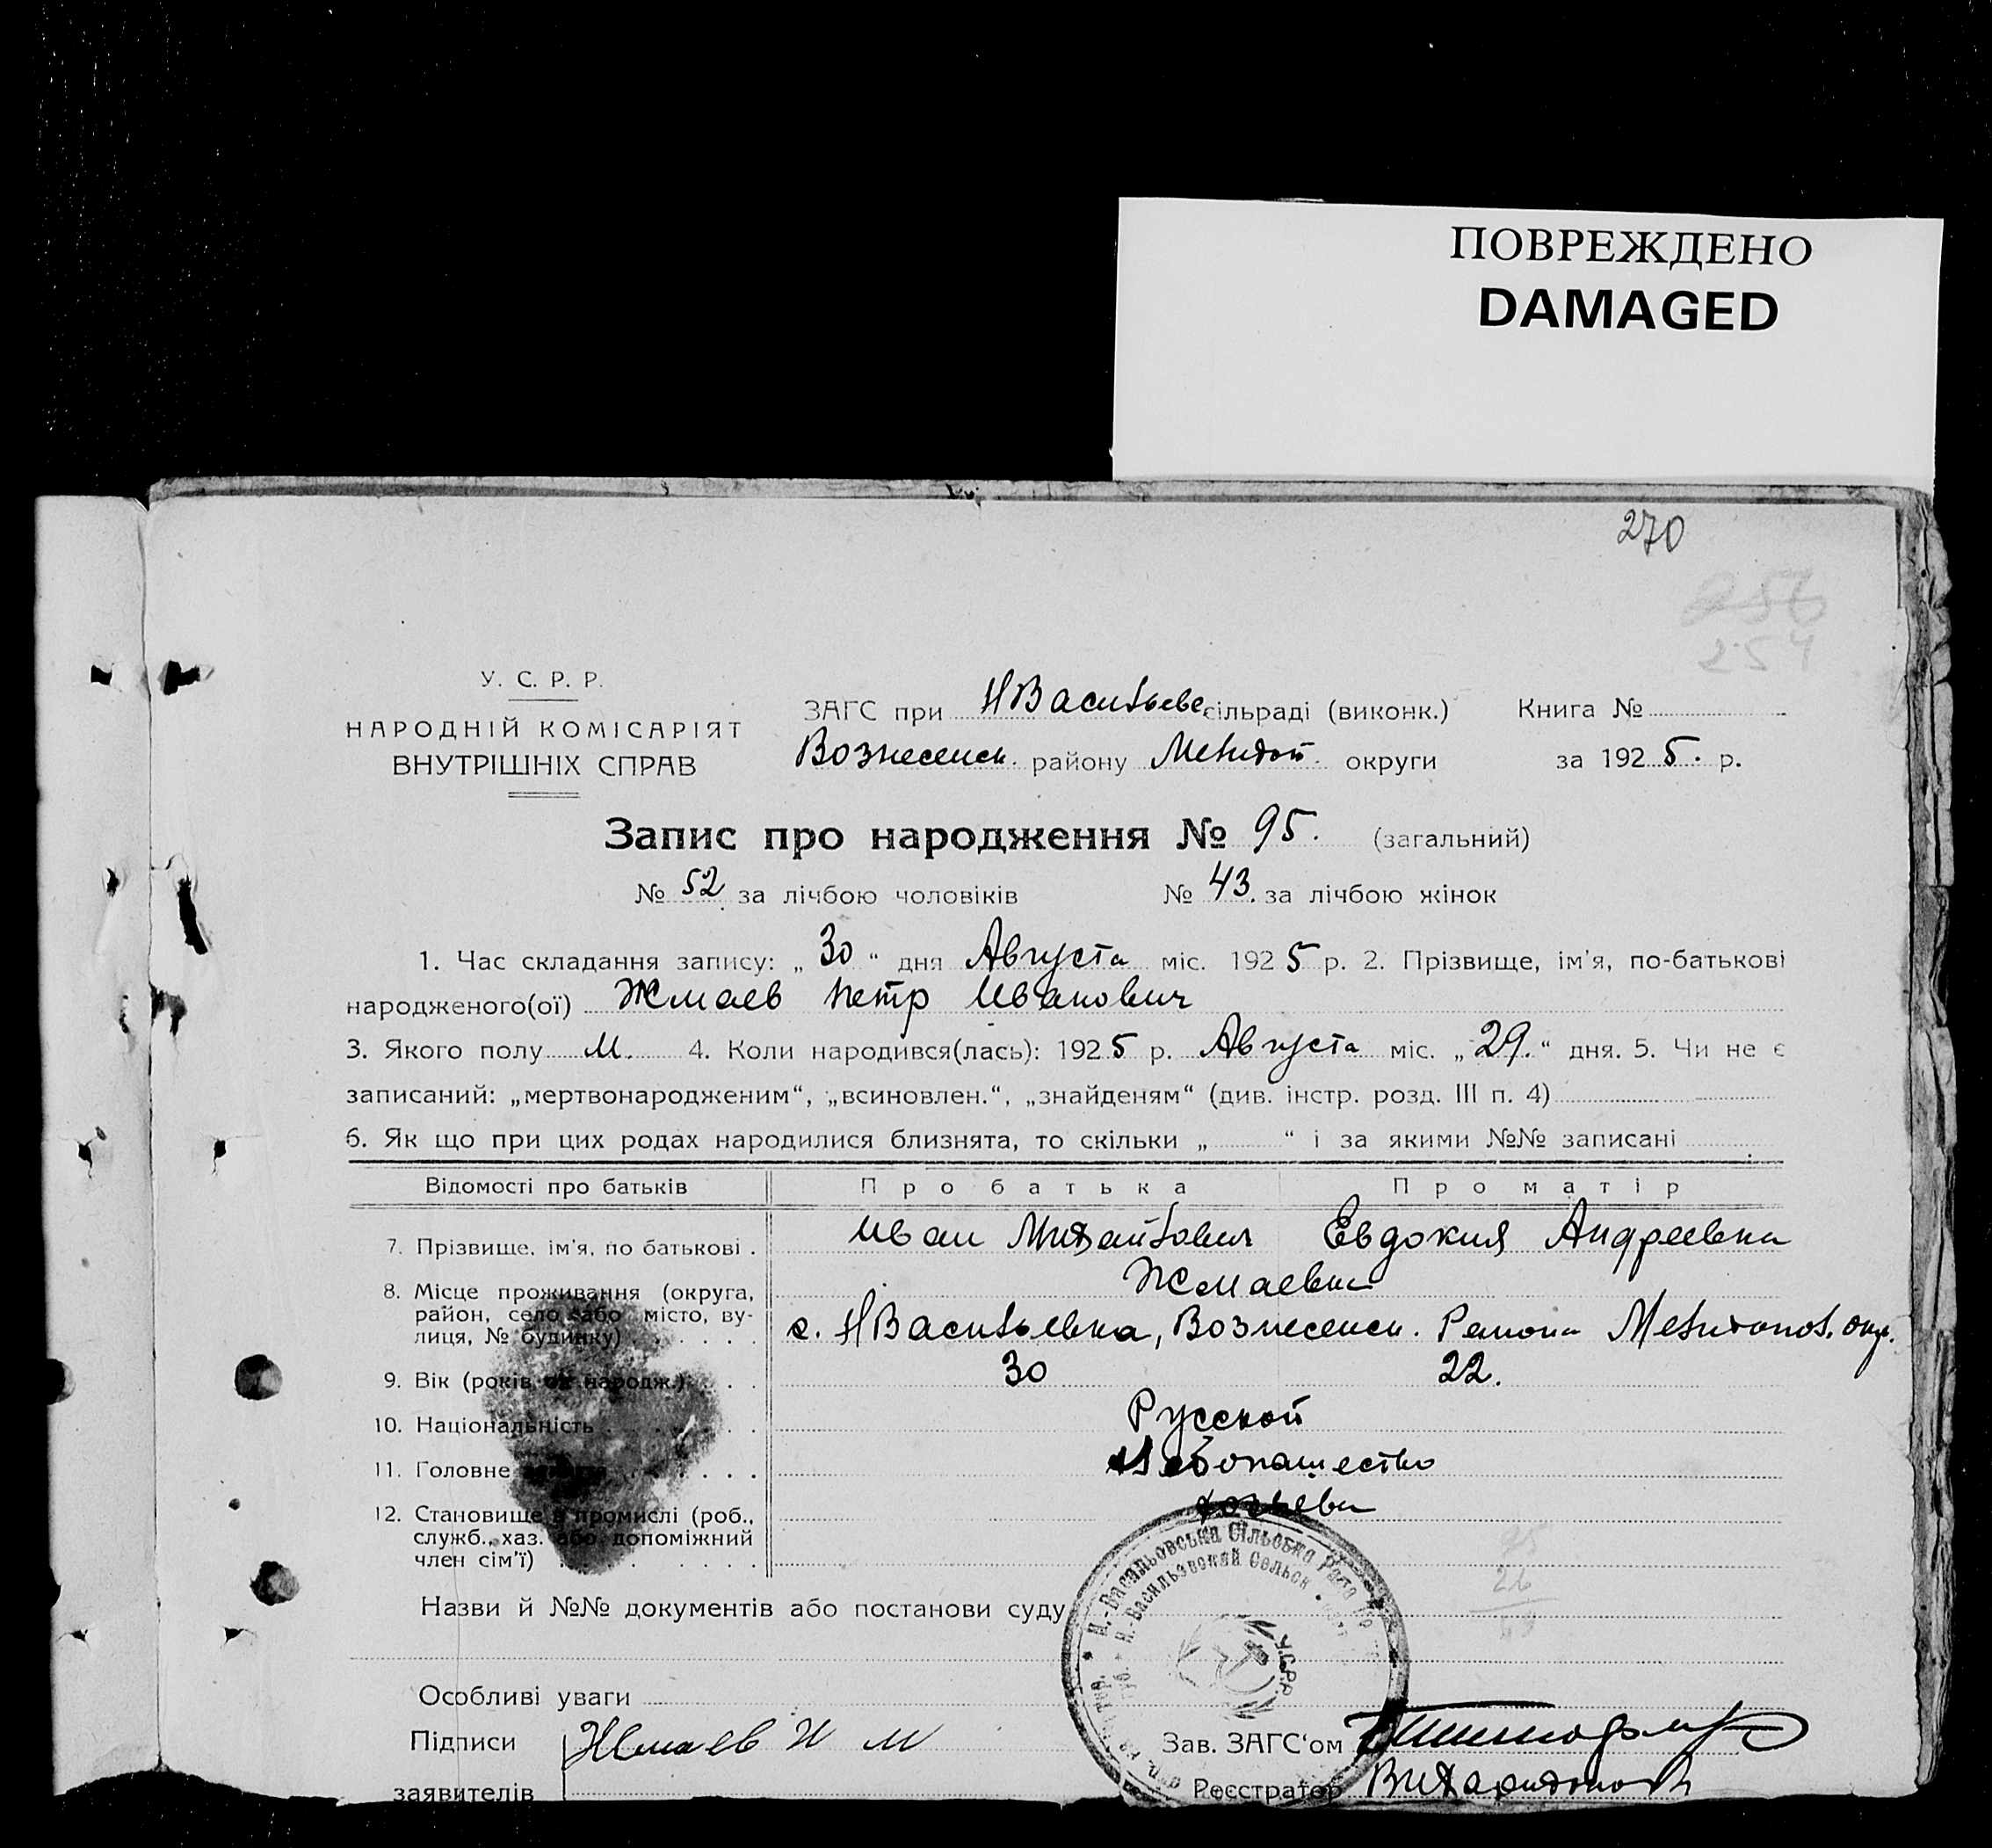 ПОВРЕЖДЕНО
DAMAGED
270
256
254
У. С. Р. Р.
НАРОДНІЙ КОМІСАРІЯТ
ВНУТРІШНІХ СПРАВ
ЗАГС при НВасильевс сільраді (виконк.) Книга №
Вознесенск. району Мелитоп. округи за 1925. р.
Запис про народження № 95. (загальний)
№ 52 за лічбою чоловіків № 43. за лічбою жінок
1. Час складання запису: „30“ дня Августа міс. 1925 р. 2. Прізвище, ім'я, по-батькові
народженого(ої) Жмаев Петр Иванович
3. Якого полу м. 4. Коли народився(лась): 1925 р. Августа міс. „29.“ дня. 5. Чи не є
записаний: „мертвонародженим“, „всиновлен.“, „знайденям“ (див. інстр. розд. III п. 4)
6. Як що при цих родах народилися близнята, то скільки „ “ і за якими №№ записані
Відомості про батьків Про батька Про матір
7. Прізвище, ім'я, по батькові . Иван Михайлович Евдокия Андреевна
Жмаевы
8. Місце проживання (округа,
район, село або місто, ву-
лиця, № будинку) с. НВасильевка, Вознесенск. Района Мелитопол. окр.
9. Вік (років од народж.) 30 22.
10. Національність Русской
11. Головне Хлебопашество
хозяева
12. Становище в промислі (роб.,
служб., хаз. або допоміжний
член сім'ї)
Н.-Васильовська Сільська Рада
Н. Васильевский Сельск
У.С.Р.Р.
95
Назви й №№ документів або постанови суду
Особливі уваги
Підписи Жмаев И М Зав. ЗАГС‘ом
заявителів Реєстратор